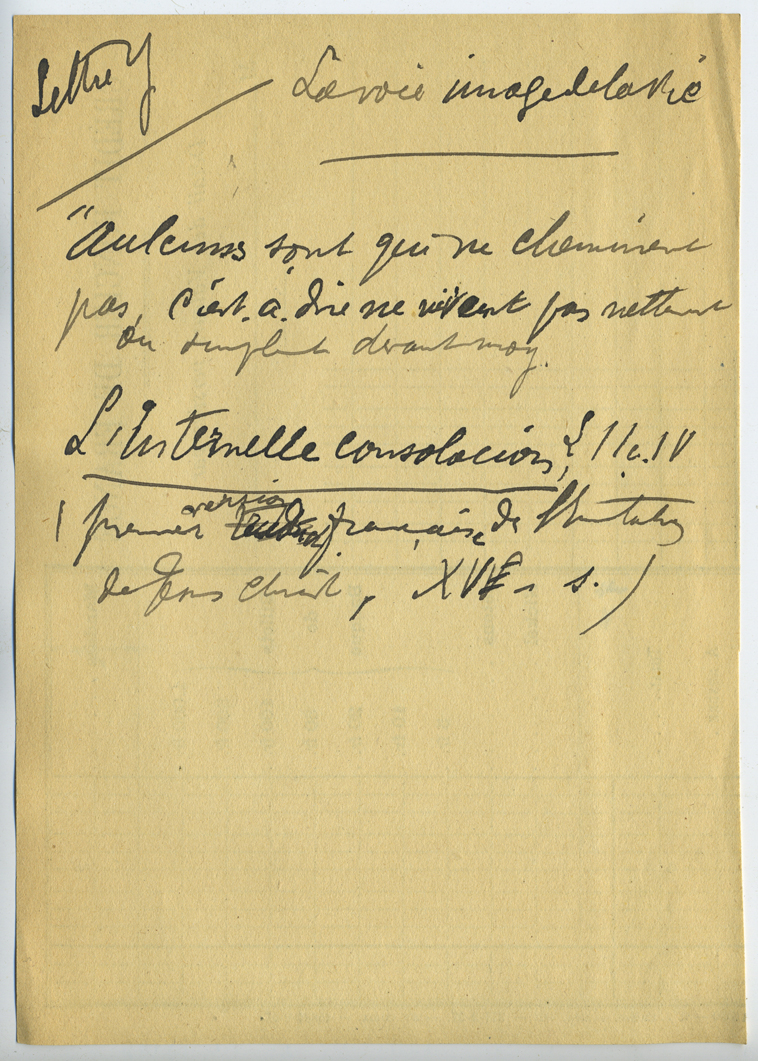 Lettre Y
La voie image de la vie
"Aulcuns sont qui ne cheminent
pas, c'est-à-dire ne vivent pas nettement
ou simplement devant moy.
L'Internelle consolacion, L II c. IV
(première version française de l'Imitation
de Jésus Christ, XVe s.)